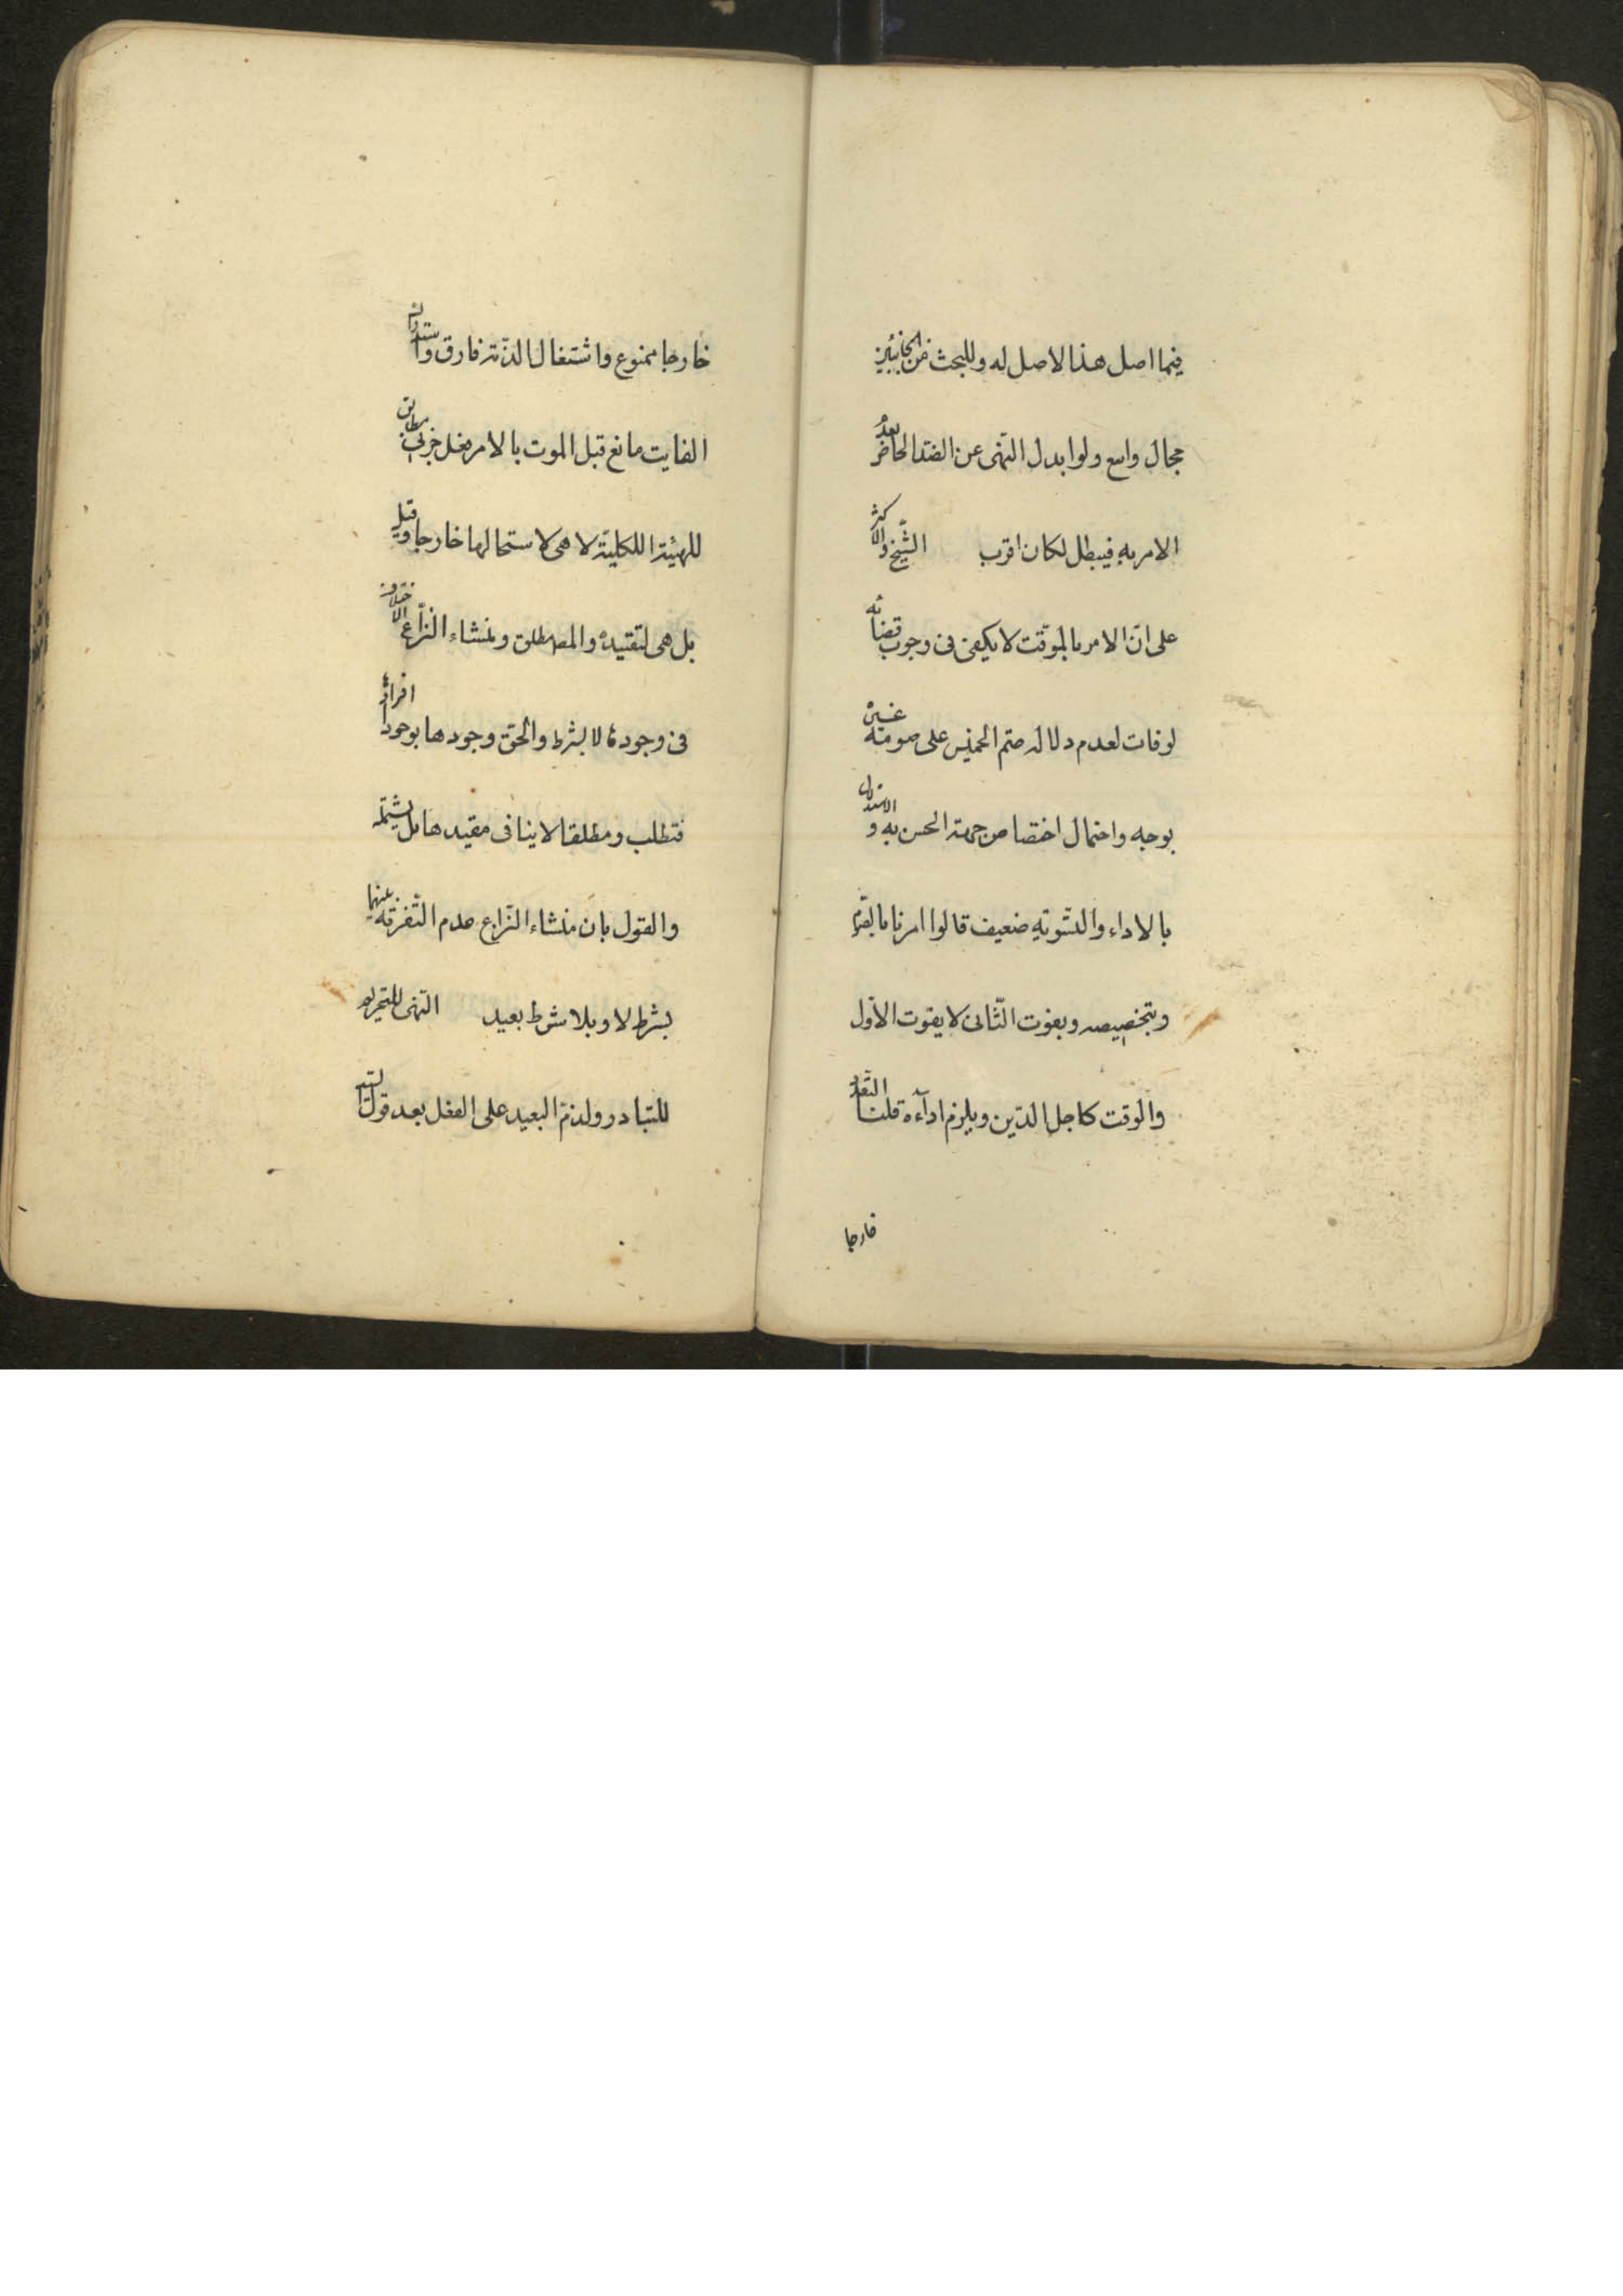 فيما اصل هذا لاصل له وللبحث من الجانبين
مجال واسع ولو ابدل النهى عن الضد الخاص بعدم
الامر به فيبطل لكان اقرب الشيخ والاكثر
على انّ الامر بالموقّت لا يكفى فى وجوب قضائه
لو فات لعدم دلالة صم الخميس على صوم غيره
بوجه واحتمال اختصاص جهة الحسن به والاستدلال
بالاداء والتسوية ضعيف قالوا امرنا بالقرء
وبتخصيصه وبفوت الثّانى لا يفوت الاوّل
والوقت كاجل الدّين ويلزم اداءه قلنا التعدد
خارجا
خارجا ممنوع واشتغال الذمّة فارق واستدراك
الفايت مانع قبل الموت بالامر بفعل جزئى مطابق
للهيّة الكليّة لا هى لاستحالتها خارجا وقيل
بل هى لتقييده والمط مطلق ومنشاء النزاع الاختلاف
فى وجود لا بشرط والحق وجودها بوجود افراده
فتطلب ومطلقا لا ينافى مقيدها بل يشتمله
والقول بان منشاء النزاع عدم التفرقة بينها
بشرط لا وبلا شرط بعيد النّهى للتحريم
للتبادر ولذمّ العبد على الفعل بعد قول السيد